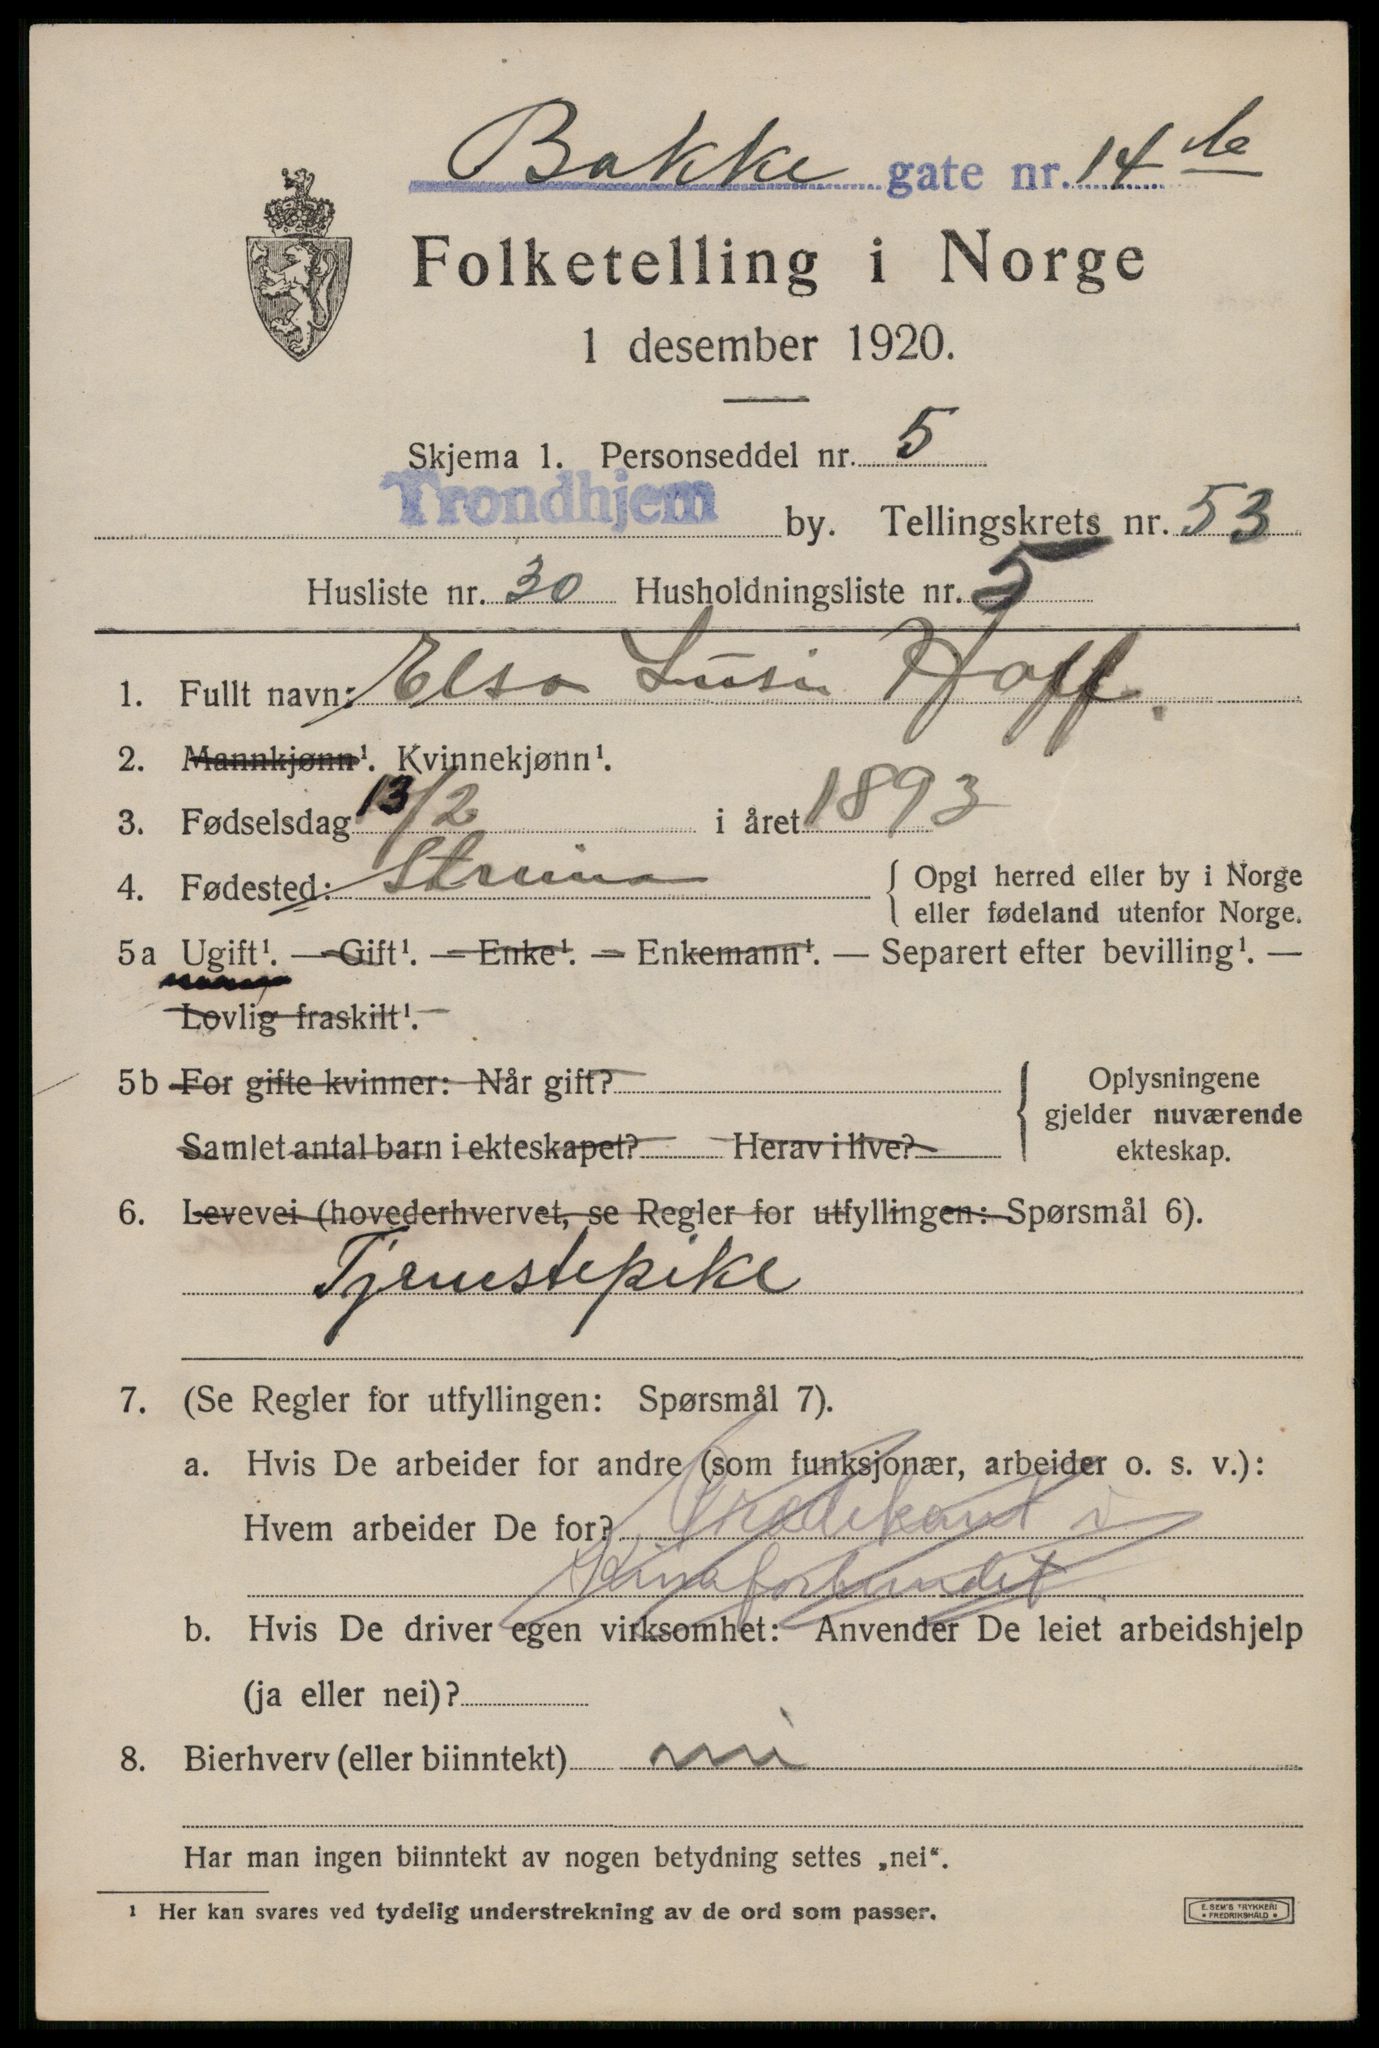 Bakke gate nr. 14 b
Folketelling i Norge
1 desember 1920.
Skjema 1. Personseddel nr. 5
Trondhjem by. Tellingskrets nr. 53
Husliste nr. 30 Husholdningsliste nr. 5
1. Fullt navn: Elsa Hoff.
2. Mannkjønn¹. Kvinnekjønn¹.
3. Fødselsdag 13/2 i året 1893
4. Fødested: Strinna { Opgi herred eller by i Norge
eller fødeland utenfor Norge.
5a Ugift¹. — Gift¹. — Enke¹. — Enkemann¹. — Separert efter bevilling¹. —
Lovlig fraskilt¹.
5b For gifte kvinner: Når gift? { Oplysningene
gjelder nuværende
Samlet antal barn i ekteskapet? Herav i live? ekteskap.
6. Levevei (hovederhvervet, se Regler for utfyllingen: Spørsmål 6).
Tjenestepike
7. (Se Regler for utfyllingen: Spørsmål 7).
a. Hvis De arbeider for andre (som funksjonær, arbeider o. s. v.):
Hvem arbeider De for? Predikant i
Kinaforbundet
b. Hvis De driver egen virksomhet: Anvender De leiet arbeidshjelp
(ja eller nei)?
8. Bierhverv (eller biinntekt) nei
Har man ingen biinntekt av nogen betydning settes „nei".
¹ Her kan svares ved tydelig understrekning av de ord som passer.
E. SEM'S TRYKKERI
• FREDRIKSHALD •